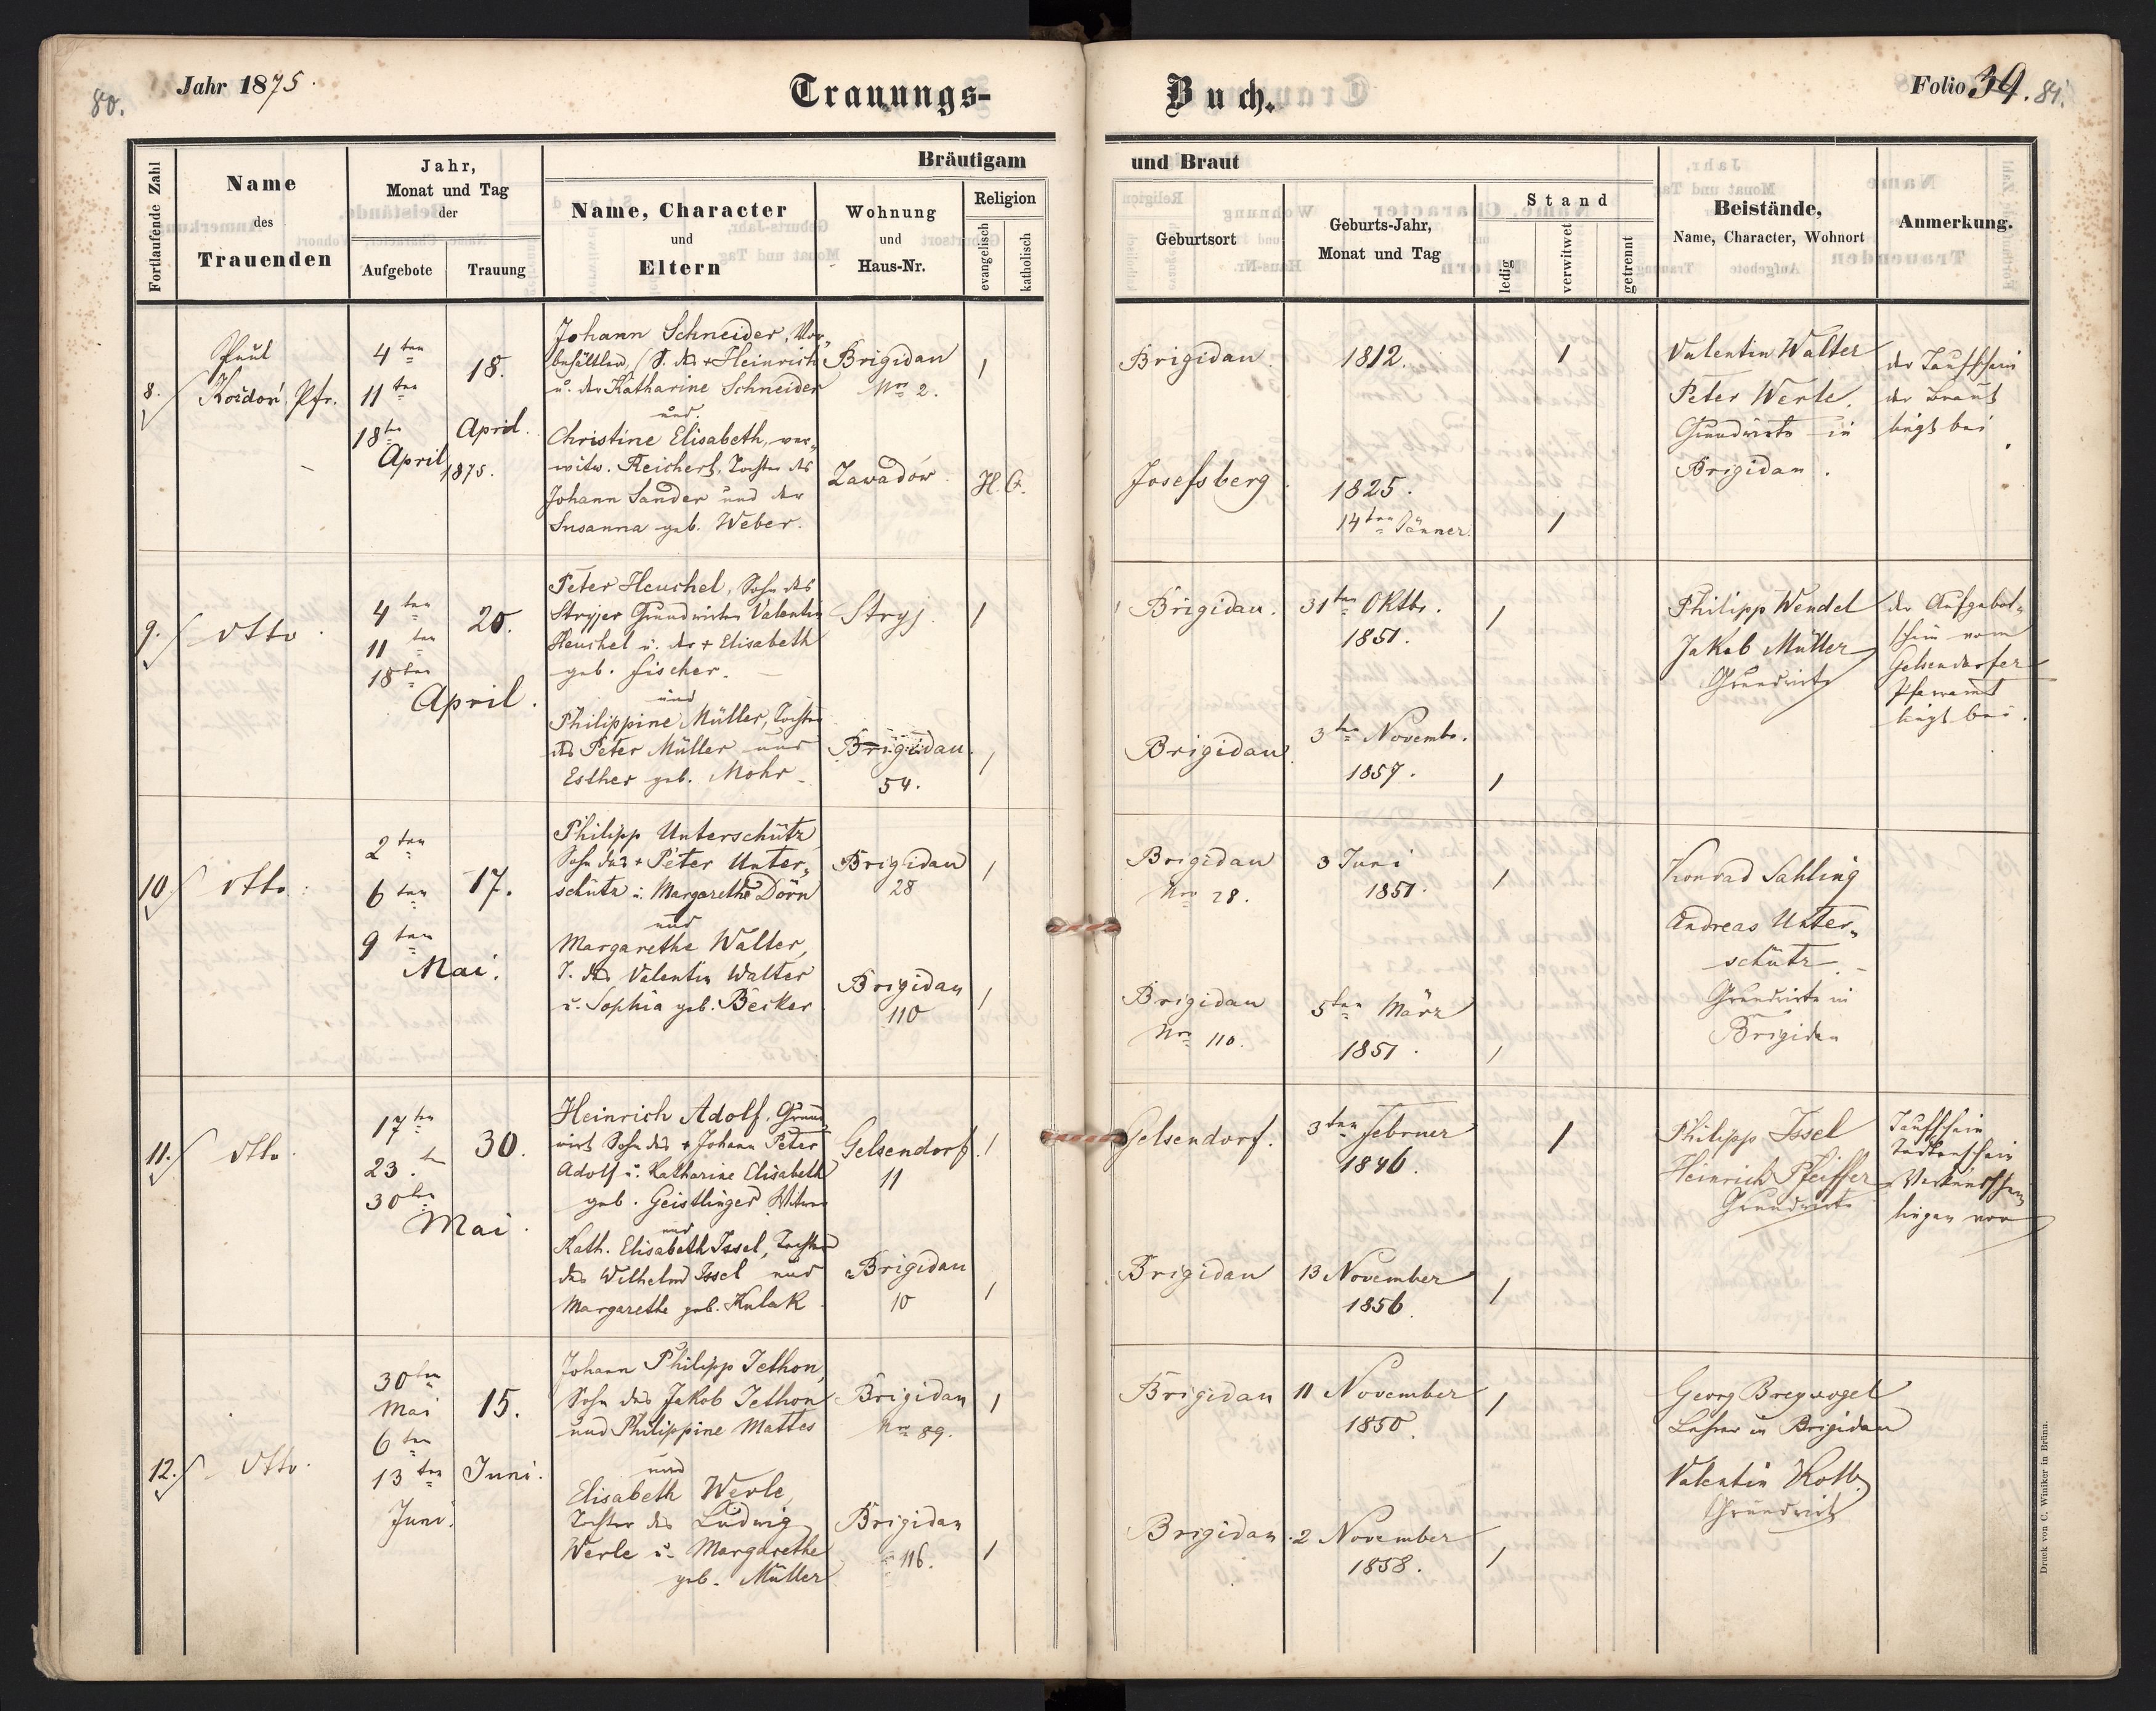 80.
Jahr 1875.
Trauungs-
Buch.
Folio 39. 81.
Fortlaufende Zahl
Name
des
Trauenden
Jahr,
Monat und Tag
der
Aufgebote
Trauung
Bräutigam
und Braut
Name, Character
und
Eltern
Wohnung
und
Haus-Nr.
Religion
evangelisch
katholisch
Geburtsort
Geburts-Jahr,
Monat und Tag
Stand
ledig
verwitwet
getrennt
Beistände,
Name, Character, Wohnort
Anmerkung.
8.
Paul
Koidoń, Pfr.
4ten
11ten
18ten
April
18.
April.
1875.
Johann Schneider,
S. des + Heinrich
u. der Katharine Schneider
und
Christine Elisabeth, ver„
witw. Reichert, Tochter des
Johann Sander und der
Susanna geb. Weber.
Brigidau
Nro 2.
Zavadów
1
H. C.
Brigidau
1812.
1
Josefsberg.
1825.
14ten Jänner.
1
Valentin Walter
Peter Werle.
Grundwirte in
Brigidau.
der Taufschein
der Braut
liegt bei.
9.
dtto.
4ten
11ten
18ten
April.
20.
Peter Heuchel, Sohn des
Stryjer Grundwirten Valentin
Heuchel u. der + Elisabeth
geb. Fischer.
und
Philippine Müller, Tochter
des Peter Müller und
Esther geb. Mohr
Stryj.
1
Brigidau.
54.
1
Brigidau.
31ten Oktbr.
1851.
1
Brigidau.
3ten Novembr.
1857.
1
Philipp Wendel
Jakob Müller
Grundwirte
der Aufgebot„
schein vom
Gelsendorfer
Pfarramt
liegt bei.
10
dtto.
2ten
6ten
9ten
Mai.
17.
Philipp Unterschütz
Sohn des + Peter Unter„
schütz u. Margarethe Dörn
und
Margarethe Walter,
T. des Valentin Walter
u. Sophia geb. Becker
Brigidau
28
1
Brigidau
110
1
Brigidau
Nro 28.
3 Juni
1851.
1
Brigidau
Nro 110.
5ten März
1851.
1
Konrad Sahling
Andreas Unter„
schütz.
Grundwirte in
Brigidau
11.
dtto.
17ten
23.ten
30ten
Mai.
30.
Heinrich Adolf, Grund
wirt Sohn des + Johann Peter
Adolf u. Katharine Elisabeth
geb. Geistlinger, Witwer
und
Kath. Elisabeth Issel, Tochter
des Wilhelm Issel und
Margarethe geb. Kulak
Gelsendorf.
11
1
Brigidau
10
1
Gelsendorf.
3ten Februer
1846.
1
Brigidau
13 November
1856.
1
Philipp Issel
Heinrich Pfeiffer
Grundwirte
Taufschein
Todtenschein
Verkündschein
liegen vor
12.
dtto.
30ten
Mai
6ten
13ten
Juni.
15.
Juni.
Johann Philipp Jethon,
Sohn des Jakob Jethon
und Philippine Mattes
und
Elisabeth Werle,
Tochter des Ludwig
Werle u. Margarethe
geb. Müller
Brigidau
Nro 89.
1
Brigidau
116.
1
Brigidau
11 November
1850.
1
Brigidau
2 November
1858.
1
Georg Breyvogel
Lehrer in Brigidau
Valentin Kolb
Grundwirt
Druck von C. Winiker in Brünn.